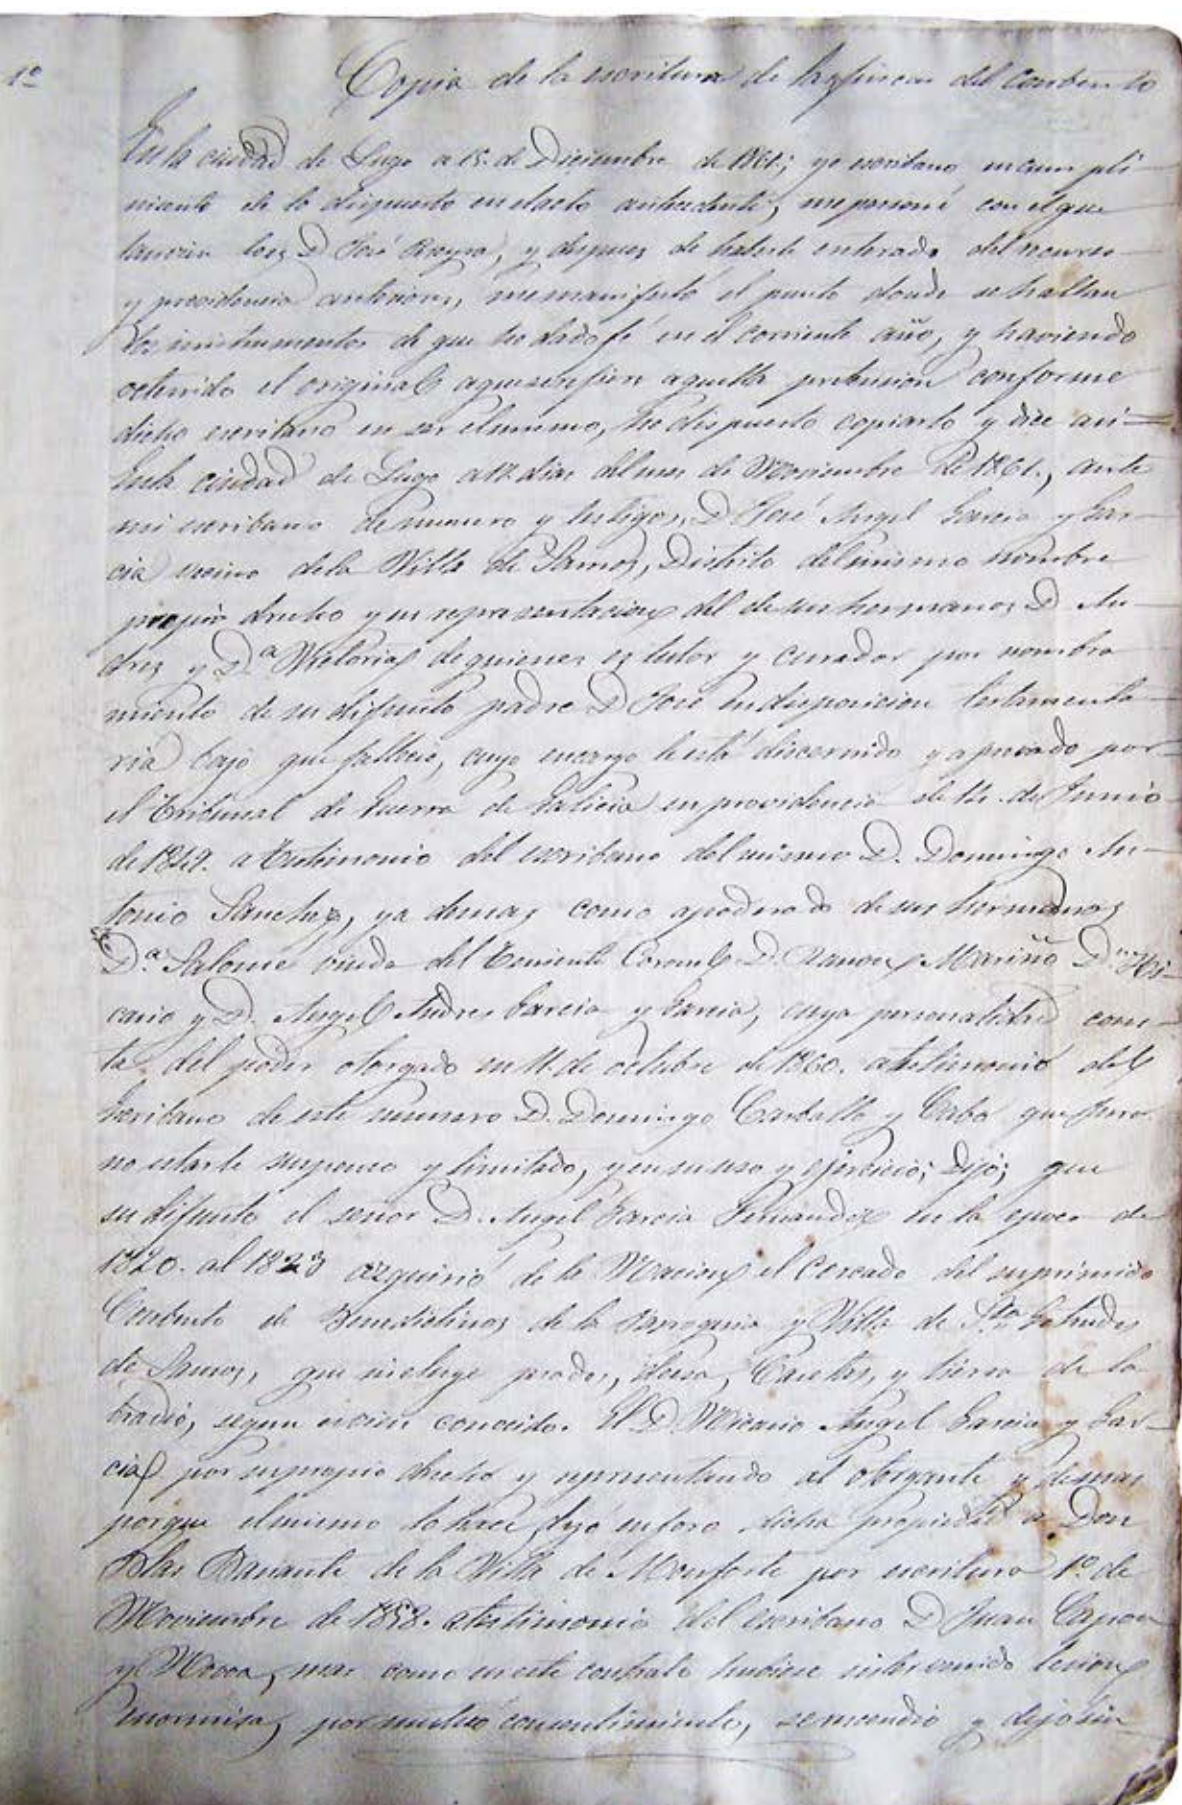 1º
Copia de la escritura de las fincas del Conbento
En la ciudad de Lugo a 15. de Diciembre de 1861; yo escribano en cumpli-
miento de lo dispuesto en el acto antecedente, me personé con el que
tanvien los, D José, y despues de haberle enterado del recurso
y providencia anteriores, me manifestó el punto donde se hallan
los instrumentos de que ha dado fé en el corriente año, y haviendo
obtenido el original a que se refiere aquella pretension conforme
dicho escribano en ser el mismo, he dispuesto copiarlo y dice asi=
En la ciudad de Lugo a 12 dias del mes de Noviembre de 1861., ante
mi escribano de numero y testigos, D José Angel Garcia y Gar-
cia vecino dela Villa de Samos, Distrito del mismo nombre
propio drecho y en representacion del de sus hermanos D. An-
dres y D.ª Victoria de quienes es tutor y curador por nombra
miento de su difunto padre D José en disposicion testamenta-
ria bajo que falleció, cuyo encargo le está discernido y aprovado por-
el Tribunal de Guerra de Galicia en providencia de 12. de Junio
de 1849. a testimonio del escribano del mismo D. Domingo An-
tonio Sanchez, ya demas como apoderado de sus hermanos
D.ª Salome viuda del Teniente Coronel D. Ramon Mariño D.n Vi-
cario y D. Angel Andres Garcia y Garcia, cuya personalidad cons-
ta del poder otorgado en 11. de octubre de 1860. a testimonio del
Escribano de este numero D. Domingo Carballo y Cabo que juro
no estarle suspenso y limitado, y en su uso y ejercicio; Dijo; que
su difunto el señor D. Angel Garcia Fernandez en la epoca de
1820. al 1823 adquirió de la Nacion el Cercado del suprimido
Conbento de Benedictinos de la Parroquia y Villa de Sta Getrudes
de Samos, que incluye prados, desa, Casetas, y tierra de la
bradio, segun es bien conocido. El D Vicario Angel Garcia y Gar-
cia por su propio drecho y representando al otorgante y demas
porque el mismo lo hace dejó en foro dicha propiedad a Don
Blas de la Villa de Monforte por escritura 1º de
Noviembre de 1858. a testimonio del escribano D Juan Capon
y Novoa, mas como en este contrato hubiese intervenido lesion
enormisa, por mutuo consentimiento, se rescendio y dejo sin